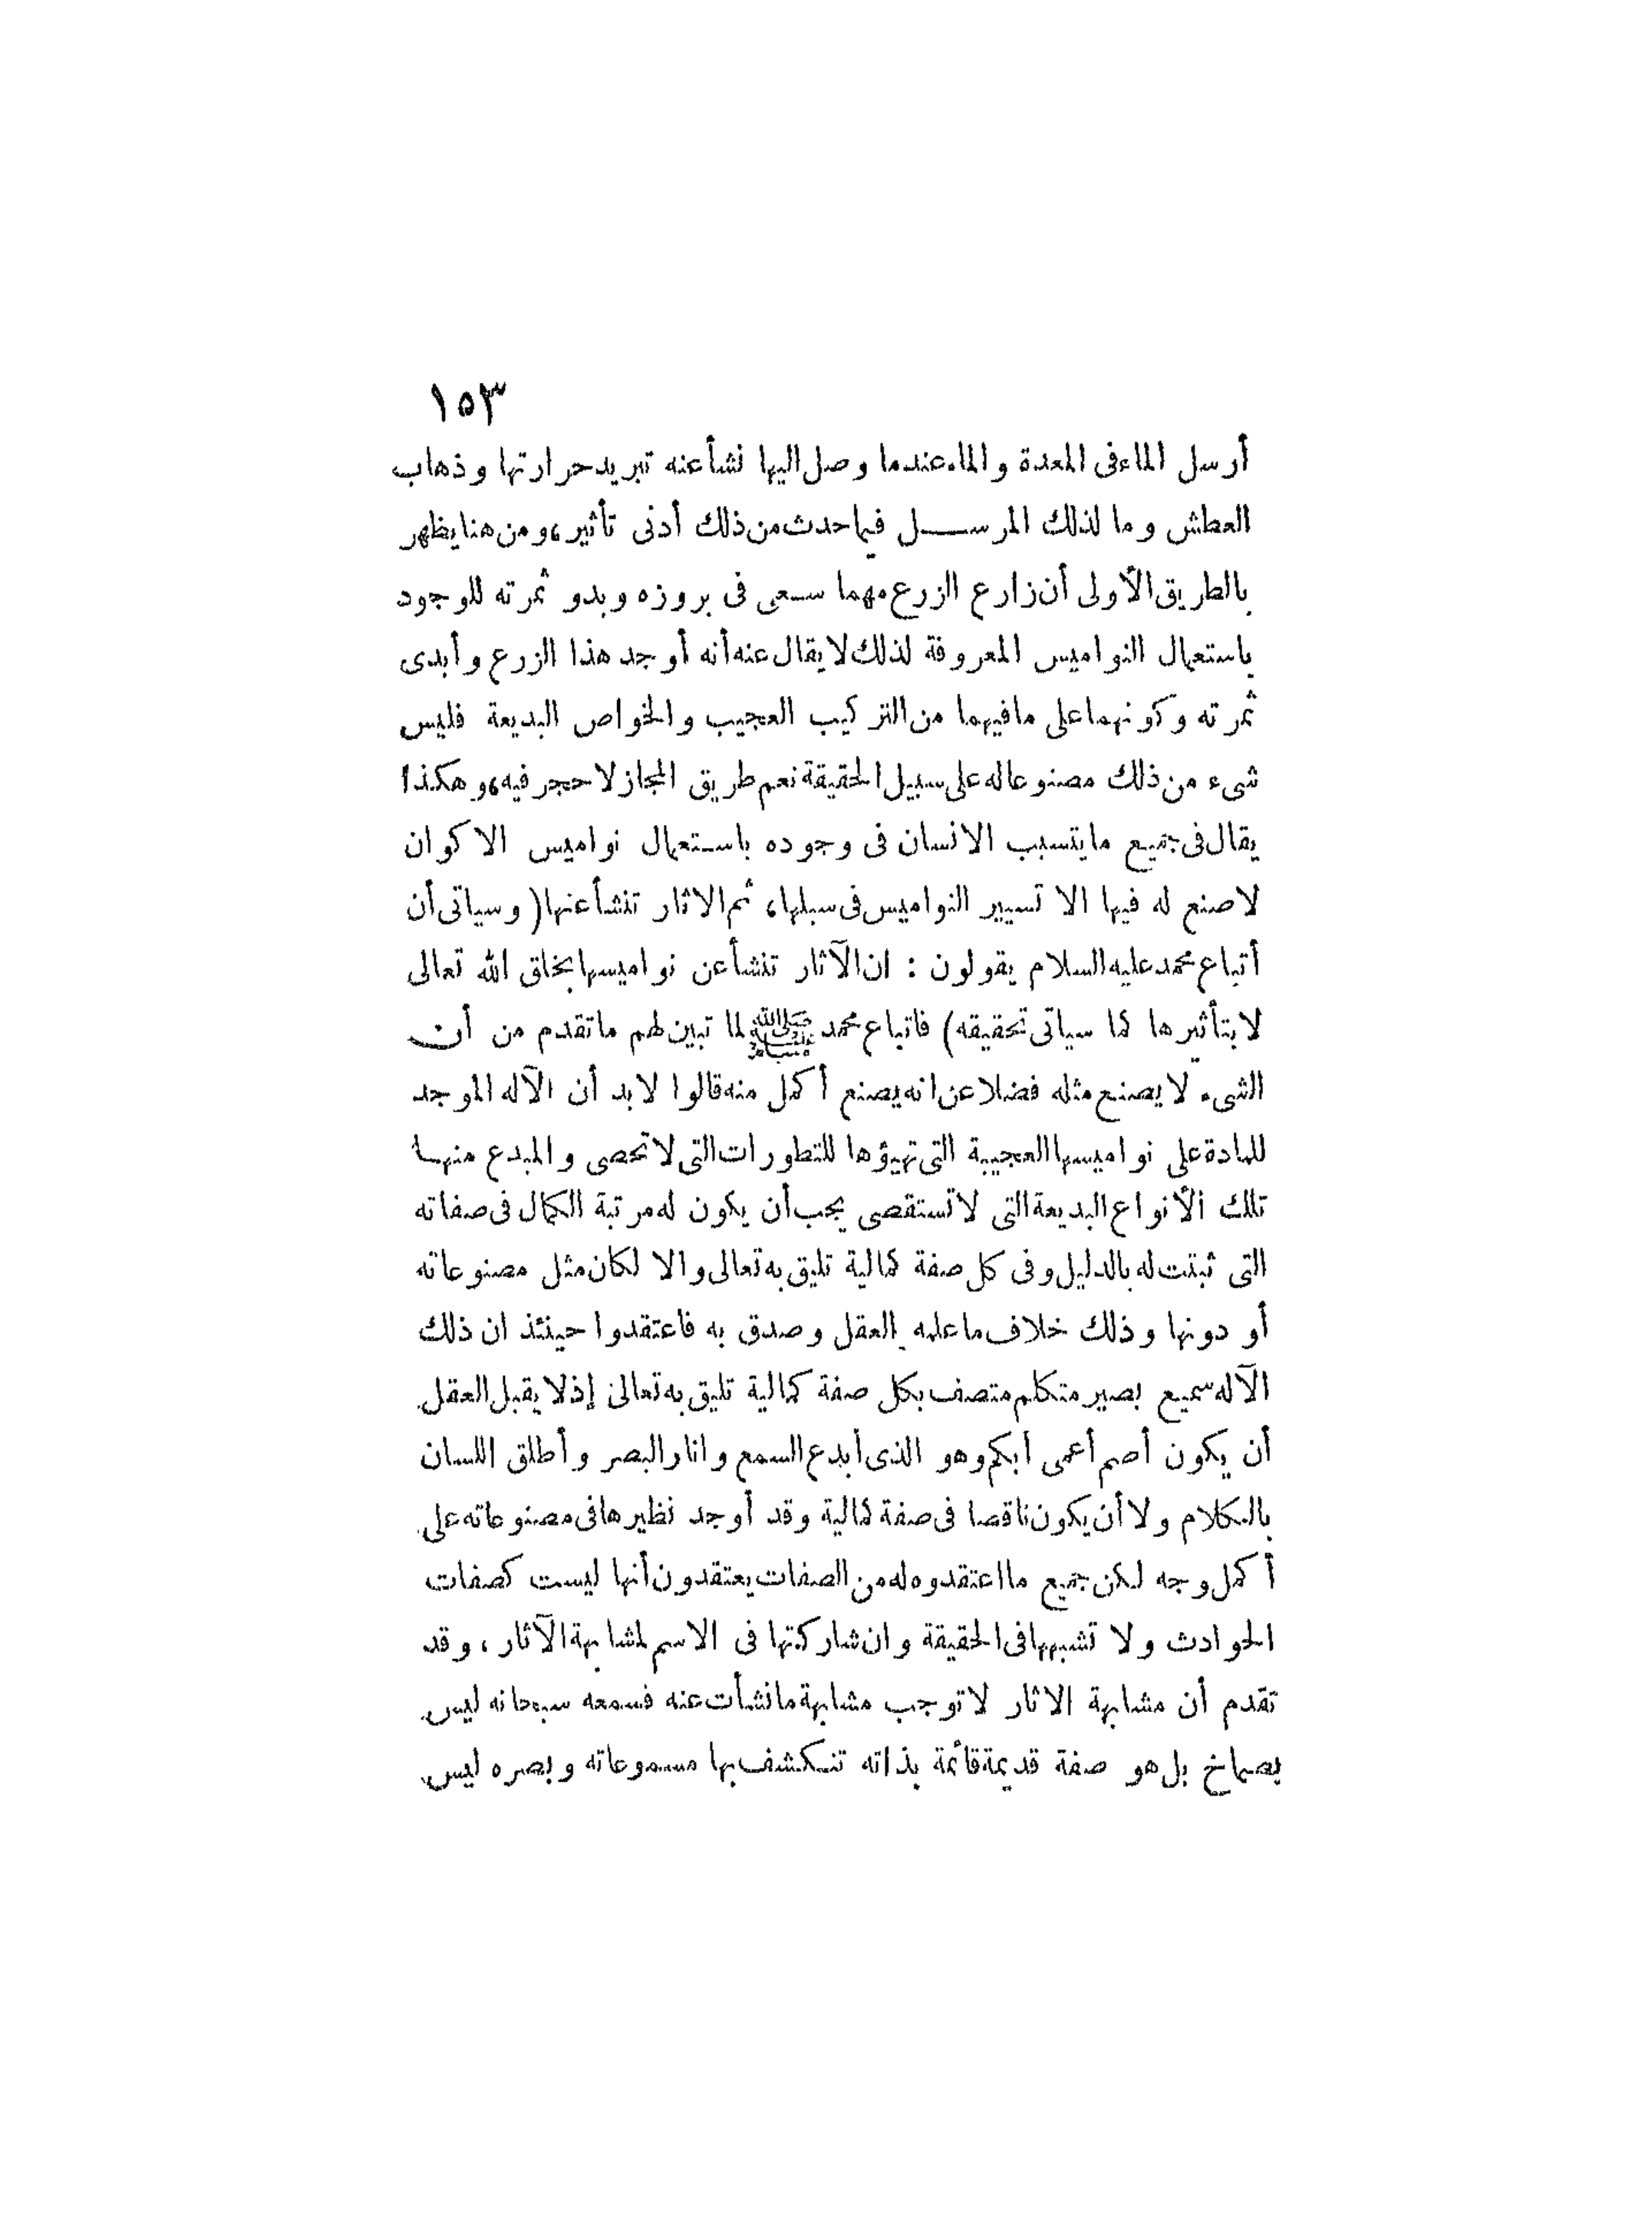 ١٥٣
أرسل الماء فى المعدة والماء عندما وصل اليها نشأ عنه تبريد حرارتها وذهاب
العطش وما لذلك المرسل فيما حدث من ذلك أدنى تأثير، ومن هنا يظهر
بالطريق الأولى أن زارع الزرع مهما سعى فى بروزه وبدو ثمرته للوجود
باستعمال النواميس المعروفة لذلك لا يقال عنه أنه أوجد هذا الزرع وأبدى
ثمرته وكونهما على ما فيهما من التركيب العجيب والخواص البديعة فليس
شىء من ذلك مصنوعا له على سبيل الحقيقة نعم طريق المجاز لا حجر فيه، وهكذا
يقال فى جميع ما يتسبب الانسان فى وجوده باستعمال نواميس الاكوان
لا صنع له فيها الا تسيير النواميس فى سبلها، ثم الاثار تنشأ عنها (وسياتى أن
أتباع محمد عليه السلام يقولون : ان الآثار تنشأ عن نواميسها بخلق الله تعالى
لا بتأثيرها كما سياتى تحقيقه) فاتباع محمد ﷺ لما تبين لهم ما تقدم من أن
الشىء لا يصنع مثله فضلا عن انه يصنع أكمل منه قالوا لا بد أن الآله الموجد
للمادة على نواميسها العجيبة التى تهيؤها للتطورات التى لا تحصى والمبدع منها
تلك الأنواع البديعة التى لا تستقصى يجب أن يكون له مرتبة الكمال فى صفاته
التى ثبتت له بالدليل وفى كل صفة كمالية تليق به تعالى والا لكان مثل مصنوعاته
أو دونها وذلك خلاف ما علمه العقل وصدق به فاعتقدوا حينئذ ان ذلك
الآله سميع بصير متكلم متصف بكل صفة كمالية تليق به تعالى إذ لا يقبل العقل
أن يكون أصم أعمى أبكم وهو الذى أبدع السمع وانار البصر وأطلق اللسان
بالكلام ولا أن يكون ناقصا فى صفة كمالية وقد أوجد نظيرها فى مصنوعاته على
أكمل وجه لكن جميع ما اعتقدوه له من الصفات يعتقدون أنها ليست كصفات
الحوادث ولا تشبهها فى الحقيقة وان شاركتها فى الاسم لمشابهة الآثار، وقد
تقدم أن مشابهة الاثار لا توجب مشابهة ما نشأت عنه فسمعه سبحانه ليس
بصماخ بل هو صفة قديمة قائمة بذاته تنكشف بها مسموعاته وبصره ليس